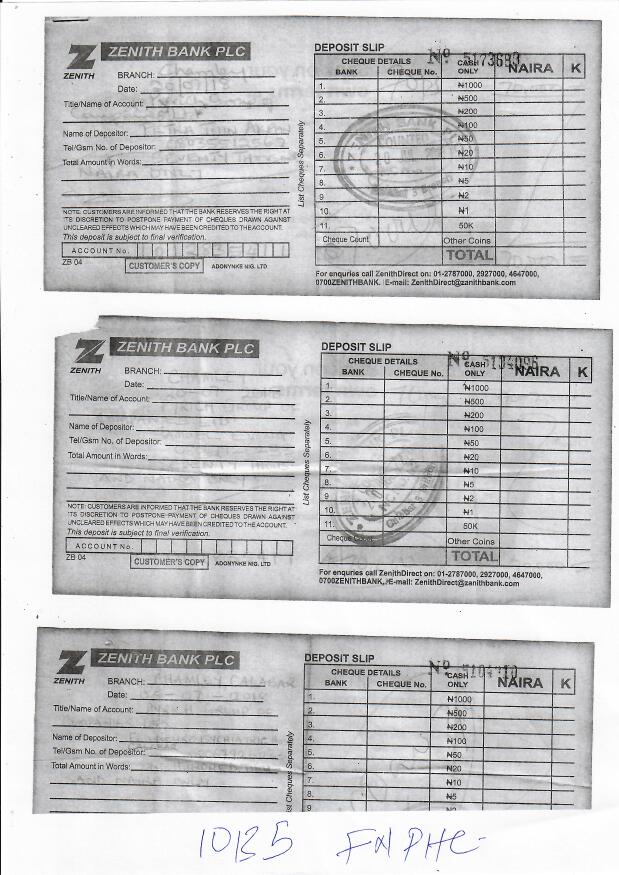 ZENITH BANK PLC
ZENITH
BRANCH:
Date:
Title/Name of Account:
Name of Depositor:
Tel/Gsm No. of Depositor:
Total Amount in Words:
NOTE: CUSTOMERS ARE INFORMED THAT THE BANK RESERVES THE RIGHT AT
ITS DISCRETION TO POSTPONE PAYMENT OF CHEQUES DRAWN AGAINST
UNCLEARED EFFECTS WHICH MAY HAVE BEEN CREDITED TO THE ACCOUNT.
This deposit is subject to final verification.
ACCOUNT No.
ZB 04
CUSTOMER'S COPY ADONYNKE NIG. LTD
List Cheques Separately
DEPOSIT SLIP
Nº 5173683
CHEQUE DETAILS CASH ONLY NAIRA K
BANK CHEQUE No.
1. ₦1000
2. ₦500
3. ₦200
4. ₦100
5. ₦50
6. ₦20
7. ₦10
8. ₦5
9. ₦2
10. ₦1
11. 50K
Cheque Count Other Coins
TOTAL
ZENITH BANK
For enquries call ZenithDirect on: 01-2787000, 2927000, 4647000,
0700ZENITHBANK. E-mail: ZenithDirect@zanithbank.com
ZENITH BANK PLC
ZENITH
BRANCH:
Date:
Title/Name of Account:
Name of Depositor:
Tel/Gsm No. of Depositor:
Total Amount in Words:
NOTE: CUSTOMERS ARE INFORMED THAT THE BANK RESERVES THE RIGHT AT
ITS DISCRETION TO POSTPONE PAYMENT OF CHEQUES DRAWN AGAINST
UNCLEARED EFFECTS WHICH MAY HAVE BEEN CREDITED TO THE ACCOUNT.
This deposit is subject to final verification.
ACCOUNT No.
ZB 04
CUSTOMER'S COPY ADONYNKE NIG. LTD
List Cheques Separately
DEPOSIT SLIP
Nº
CHEQUE DETAILS CASH ONLY NAIRA K
BANK CHEQUE No.
1. ₦1000
2. ₦500
3. ₦200
4. ₦100
5. ₦50
6. ₦20
7. ₦10
8. ₦5
9. ₦2
10. ₦1
11. 50K
Cheque Count Other Coins
TOTAL
For enquries call ZenithDirect on: 01-2787000, 2927000, 4647000,
0700ZENITHBANK, E-mail: ZenithDirect@zanithbank.com
ZENITH BANK PLC
ZENITH
BRANCH: CALABAR
Date:
Title/Name of Account:
Name of Depositor:
Tel/Gsm No. of Depositor:
Total Amount in Words:
List Cheques Separately
DEPOSIT SLIP
Nº
CHEQUE DETAILS CASH ONLY NAIRA K
BANK CHEQUE No.
1. ₦1000
2. ₦500
3. ₦200
4. ₦100
5. ₦50
6. ₦20
7. ₦10
8. ₦5
9